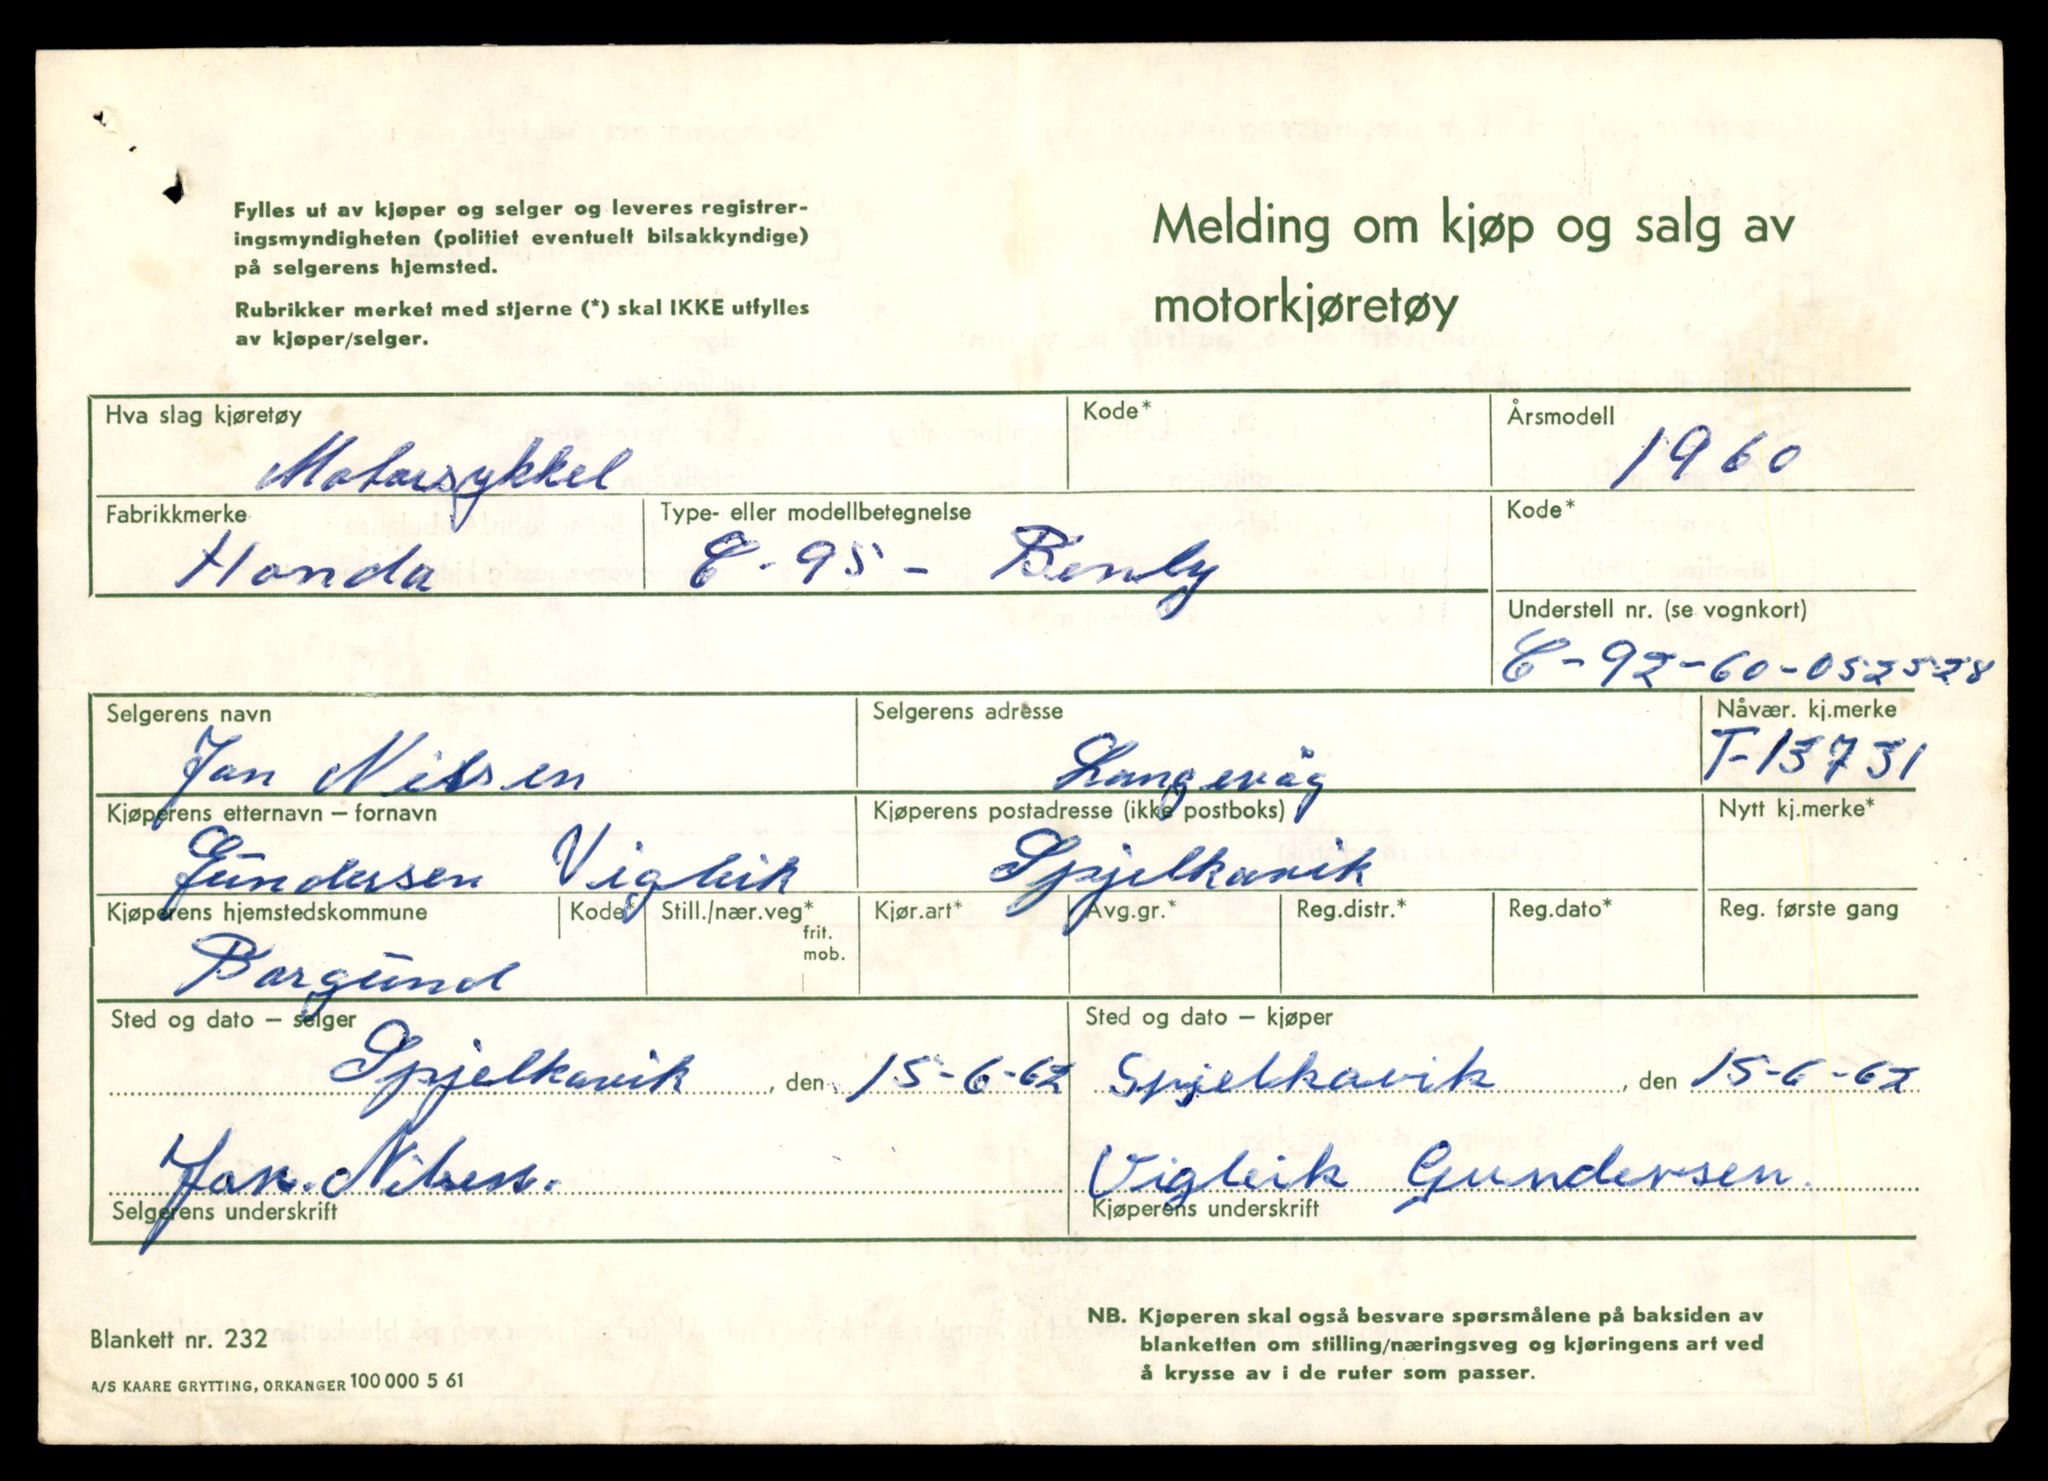 Fylles ut av kjøper og selger og leveres registrer-
ingsmyndigheten (politiet eventuelt bilsakkyndige)
på selgerens hjemsted.
Rubrikker merket med stjerne (*) skal IKKE utfylles
av kjøper/selger.
Melding om kjøp og salg av
motorkjøretøy
Hva slag kjøretøy
Motorsykkel
Kode*
Årsmodell
1960
Fabrikkmerke
Honda
Type- eller modellbetegnelse
C-95 - Benly
Kode*
Understell nr. (se vognkort)
C-92-60-052528
Selgerens navn
Jan Nilsen
Selgerens adresse
Langevåg
Nåvær. kj.merke
T-13731
Kjøperens etternavn – fornavn
Gundersen Vigleik
Kjøperens postadresse (ikke postboks)
Spjelkavik
Nytt kj.merke*
Kjøperens hjemstedskommune
Borgund
Kode*
Still./nær.veg*
frit.
mob.
Kjør.art*
Avg.gr.*
Reg.distr.*
Reg.dato*
Reg. første gang
Sted og dato – selger
Spjelkavik, den 15-6-62
Sted og dato – kjøper
Spjelkavik, den 15-6-62
Jan. Nilsen.
Selgerens underskrift
Vigleik Gundersen.
Kjøperens underskrift
Blankett nr. 232
A/S KAARE GRYTTING, ORKANGER 100 000 5 61
NB. Kjøperen skal også besvare spørsmålene på baksiden av
blanketten om stilling/næringsveg og kjøringens art ved
å krysse av i de ruter som passer.